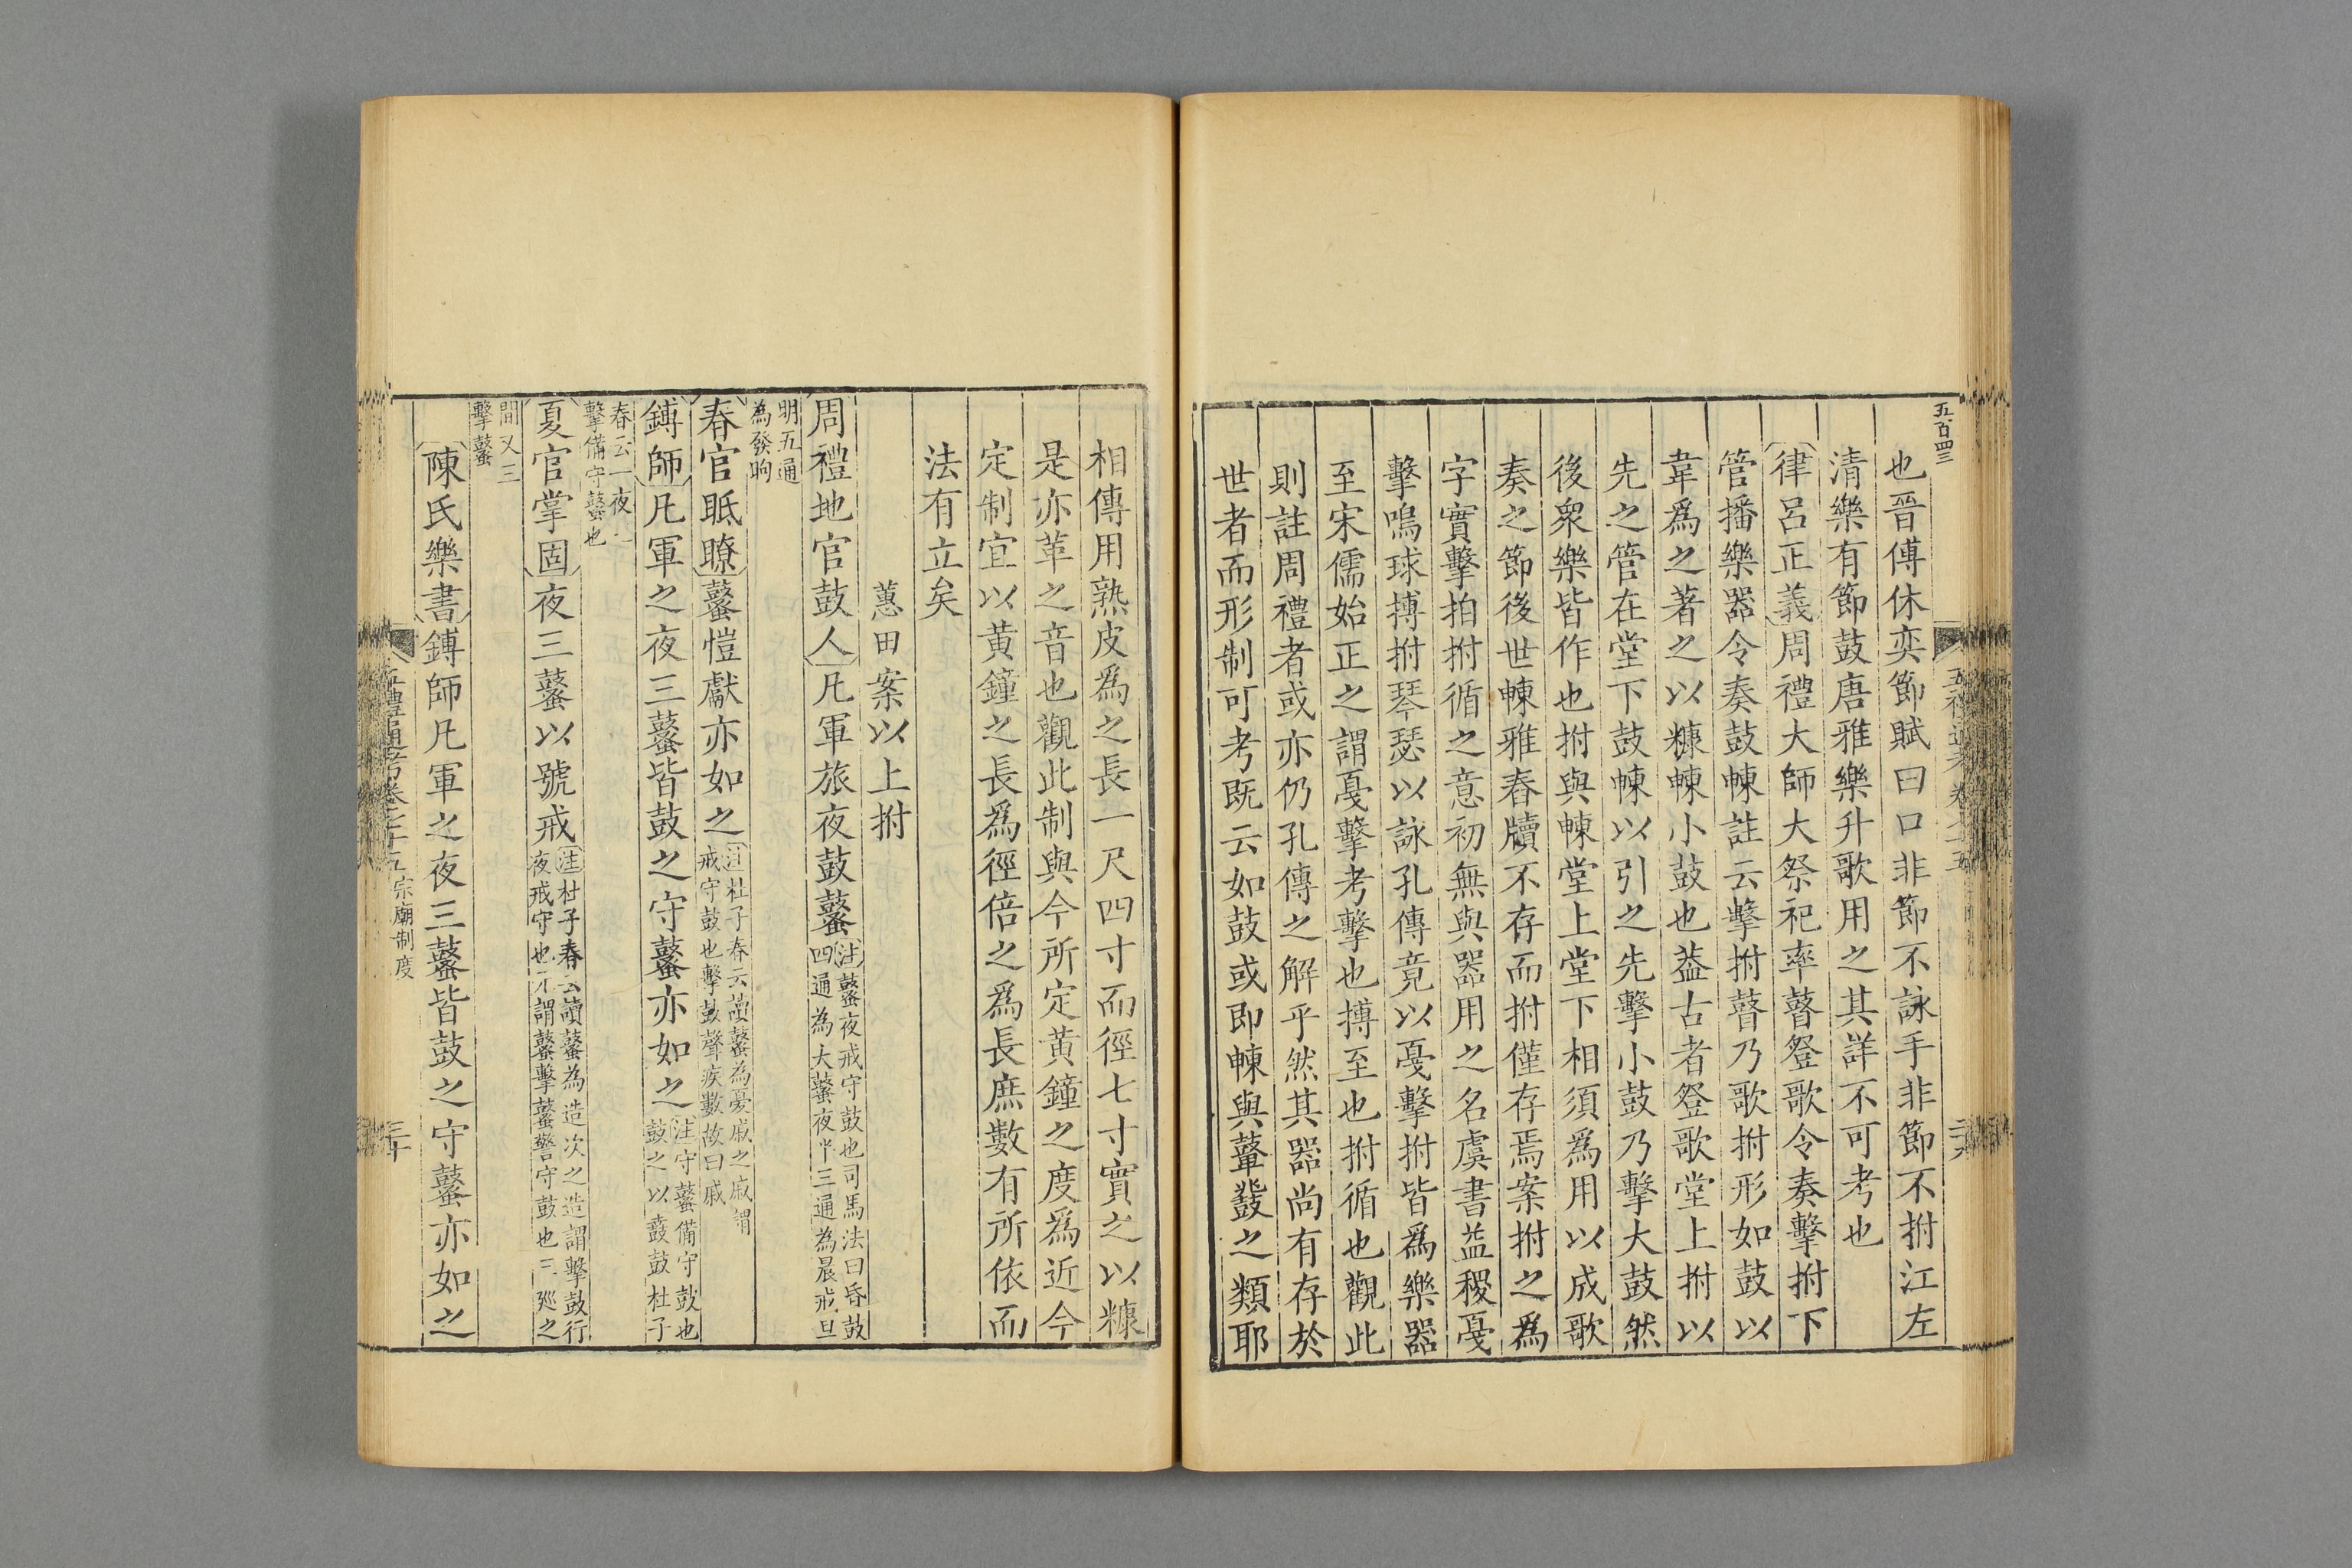 五百四三
也晉傅休奕節賦曰口非節不詠手非節不拊江左
清樂有節鼓唐雅樂升歌用之其詳不可考也
律呂正義周禮大師大祭祀率瞽登歌令奏擊拊下
管播樂器令奏鼓朄註云擊拊瞽乃歌拊形如鼓以
韋爲之著之以糠朄小鼓也葢古者登歌堂上拊以
先之管在堂下鼓朄以引之先擊小鼓乃擊大鼓然
後衆樂皆作也拊與朄堂上堂下相須爲用以成歌
奏之節後世朄雅舂牘不存而拊僅存焉案拊之爲
字實擊拍拊循之意初無與器用之名虞書益稷戞
擊鳴球搏拊琴瑟以詠孔傳竟以戞擊拊皆爲樂器
至宋儒始正之謂戞擊考擊也搏至也拊循也觀此
則註周禮者或亦仍孔傳之解乎然其器尚有存於
世者而形制可考既云如鼓或即朄與鼙鼗之類耶
相傳用熟皮爲之長一尺四寸而徑七寸實之以糠
是亦革之音也觀此制與今所定黃鐘之度爲近今
定制宜以黃鐘之長爲徑倍之爲長庶數有所依而
法有立矣
蕙田案以上拊
周禮地官鼓人凡軍旅夜鼓鼜注鼜夜戒守鼓也司馬法曰昏鼓
四通為大鼜夜半三通為晨戒旦
明五通
為發昫
春官眡瞭鼜愷獻亦如之注杜子春云讀鼜為憂戚之戚謂
戒守鼓也擊鼓聲疾數故曰戚
鎛師凡軍之夜三鼜皆鼓之守鼜亦如之注守鼜備守鼓也
鼓之以鼖鼓杜子
春云一夜三
擊備守鼜也
夏官掌固夜三鼜以號戒注杜子春云讀鼜為造次之造謂擊鼓行
夜戒守也不謂鼜擊鼜警守鼓也三廵之
間又三
擊鼜
陳氏樂書鎛師凡軍之夜三鼜皆鼓之守鼜亦如之
五禮通考卷七十五宗廟制度
三十